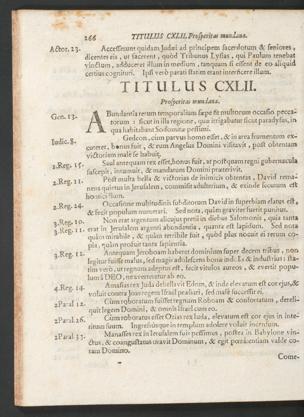 266 TITULUS CXLII. Prosperitas mundana.
Actor. 23. Accesserunt quidam Judæi ad principem sacerdotum & seniores,
dicentes eis, ut facerent, quòd Tribunus Lysias, qui Paulum tenebat
vinctum, adduceret illum in medium, tanquam si essent de eo aliquid
certius cognituri. Ipsi verò parati statim erant interficere illum.
TITULUS CXLII.
Prosperitas mundana.
Gen. 13. Abundantia rerum temporalium sæpe fit multorum occasio pecca-
torum : sicut in illa regione, quæ irrigabatur sicut paradysus, in
qua habitabant Sodomitæ pessimi.
Iudic. 8. Gedeon, cùm parvus homo esset, & in area frumentum ex-
cuteret, erat bonus fuit, & eum Angelus Domini visitavit, post obtentam
victoriam malè se habuit.
1. Reg. 15. Saul antequam rex esset, bonus fuit, at postquam regni gubernacula
suscepit, intumuit, & mandatum Domini præterivit.
2. Reg. 11. Post multa bella & victorias de inimicis obtentas, David rema-
nens quietus in Jerusalem, commisit adulterium, & exinde secutum est
homicidium.
2. Reg. 24. Occasione multitudinis subditorum David in superbiam elatus est,
& fecit populum numerari. Sed nota, quàm graviter fuerit punitus.
3. Reg. 10. Non erat argentum alicujus pretii in diebus Salomonis, quia tanta
3. Reg. 11. erat in Jerusalem argenti abundantia, quanta est lapidum. Sed nota
quàm mirabile, & quàm terribile fuit, quòd plus nocuit ei rerum co-
pia, quàm prodesse tanta sapientia.
3. Reg. 12. Antequam Jeroboam haberet dominium super decem tribus, non
legitur fuisse malus, sed magis adolescens bonæ indolis & industrius : sta-
tim verò, ut regnum adeptus est, fecit vitulos aureos, & evertit popu-
lum à DEO, ne reverteretur ab eo.
4. Reg. 14. Amasias rex Juda debellavit Edom, & inde elevatum est cor ejus, &
voluit contra Joas regem Israël pugnare, sed malè successit ei.
2 Paral. 12. Cùm roboratum fuisset regnum Roboam & confortatum, dereli-
quit legem Domini, & omnis Israël cum eo.
2 Paral. 26. Cùm roboratus esset Ozias rex Juda, elevatum est cor ejus in inte-
ritum suum. Ingressusque in templum adolere voluit incensum.
2 Paral. 33. Manasses rex in Jerusalem fuit pessimus, postea in Babylone vin-
ctus, & coangustatus oravit Dominum, & egit pœnitentiam valde co-
ram Domino.
Come-